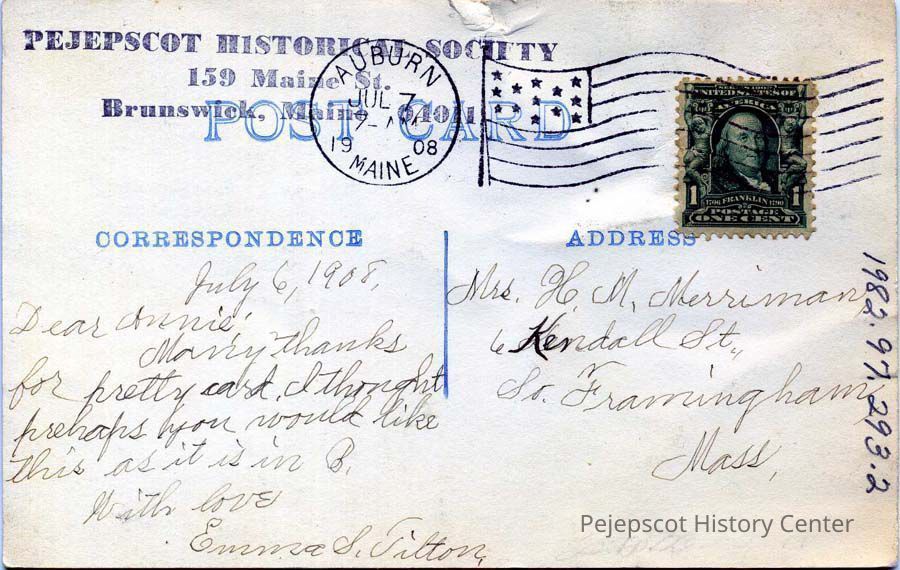 PEJEPSCOT HISTORICAL SOCIETY
159 Maine St.
Brunswick, Maine 04011
POST CARD
AUBURN
JUL 7
7-AM
19 08
MAINE
SERIES 1902
UNITED STATES OF
AMERICA
1 1
1706 FRANKLIN 1790
POSTAGE
ONE CENT
CORRESPONDENCE
July 6, 1908,
Dear Annie;
Many thanks
for pretty card. I thought
prehaps you would like
this as it is in B.
With love
Emma S. Tilton,
ADDRESS
Mrs. H. M. Merriman,
6 Kendall St.,
So. Framingham,
Mass,
1982.97.293.2
Pejepscot History Center